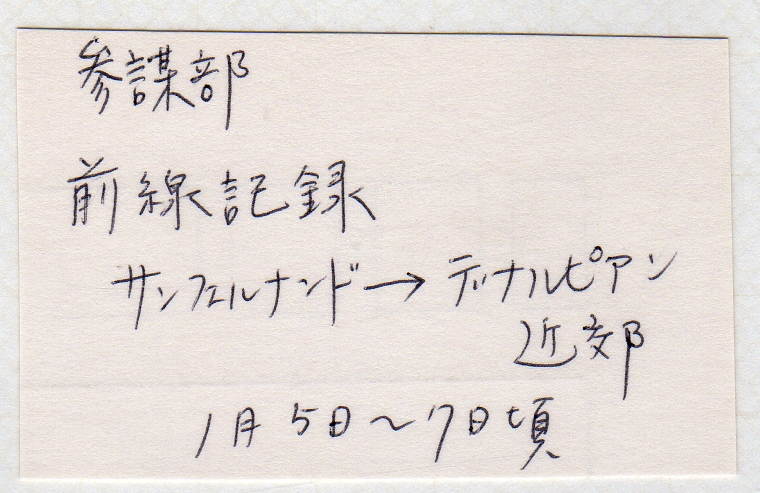 参謀部
前線記録
サンフェルナンド→ディナルピアン
近郊
1月5日〜7日頃